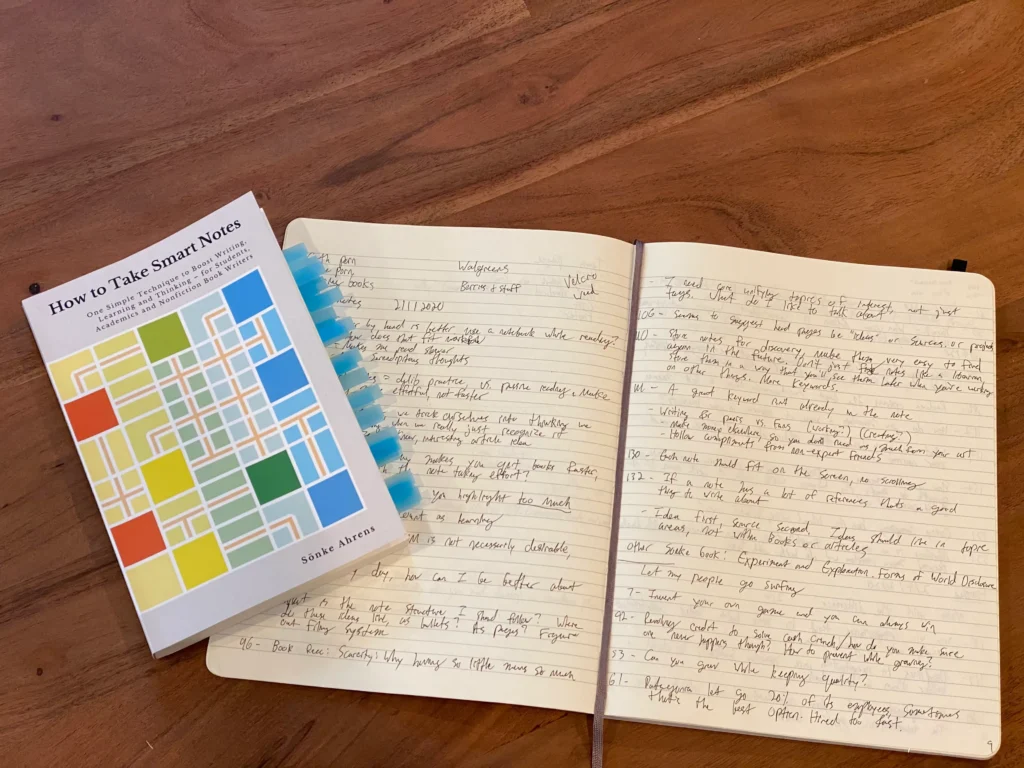 How to Take Smart Notes
One Simple Technique to Boost Writing,
Learning and Thinking – for Students,
Academics and Nonfiction Book Writers
Sönke Ahrens
Walgreens
books
notes 2/1/2020
by hand is better use a notebook while reading?
How does that fit
makes me read slower
thoughts
= delib. practice, vs. passive reading
effortful, not faster
we trick ourselves into thinking we
when we really just recognize it
interesting article idea
makes you get books faster,
the note taking effort?
you highlight too much
count as learning
is not necessarily desirable,
day, how can I be better about
is the note structure I should follow? Where
do these ideas live, as bullets? As pages? Figure
out filing system
96 - Book Rec: Scarcity: Why having so little means so much
- I need core unifying topics of interest, not just
tags. What do I like to talk about
106 - Seems to suggest head pages be "ideas" or sources or projects
110 - Store notes for discovery, make them very easy to find
again in the future. Don't just notes like a librarian
store them in a way that you'll see them later when you're working
on other things. More keywords.
111 - A good keyword isn't already in the note
- Writing for peers vs. fans (Writing?) (Creating?)
Make money elsewhere so you don't need
Hollow compliments from non-expert friends
130 - Each note should fit on the screen, no scrolling
132 - If a note has a lot of references that's a good
thing to write about
- Idea first, source second. Ideas should live in topic
areas, not within books or articles
other Sonke book: Experiment and Exploration: Forms of World Disclosure
Let my people go surfing
7 - Invent your own game and you can always win
92 - Needing credit to solve cash crunch / how do you make sure
one never happens though? How to prevent while growing?
53 - Can you grow while keeping quality?
61 - Patagonia let go 20% of its employees, sometimes
that's the best option. Hired too fast.
9